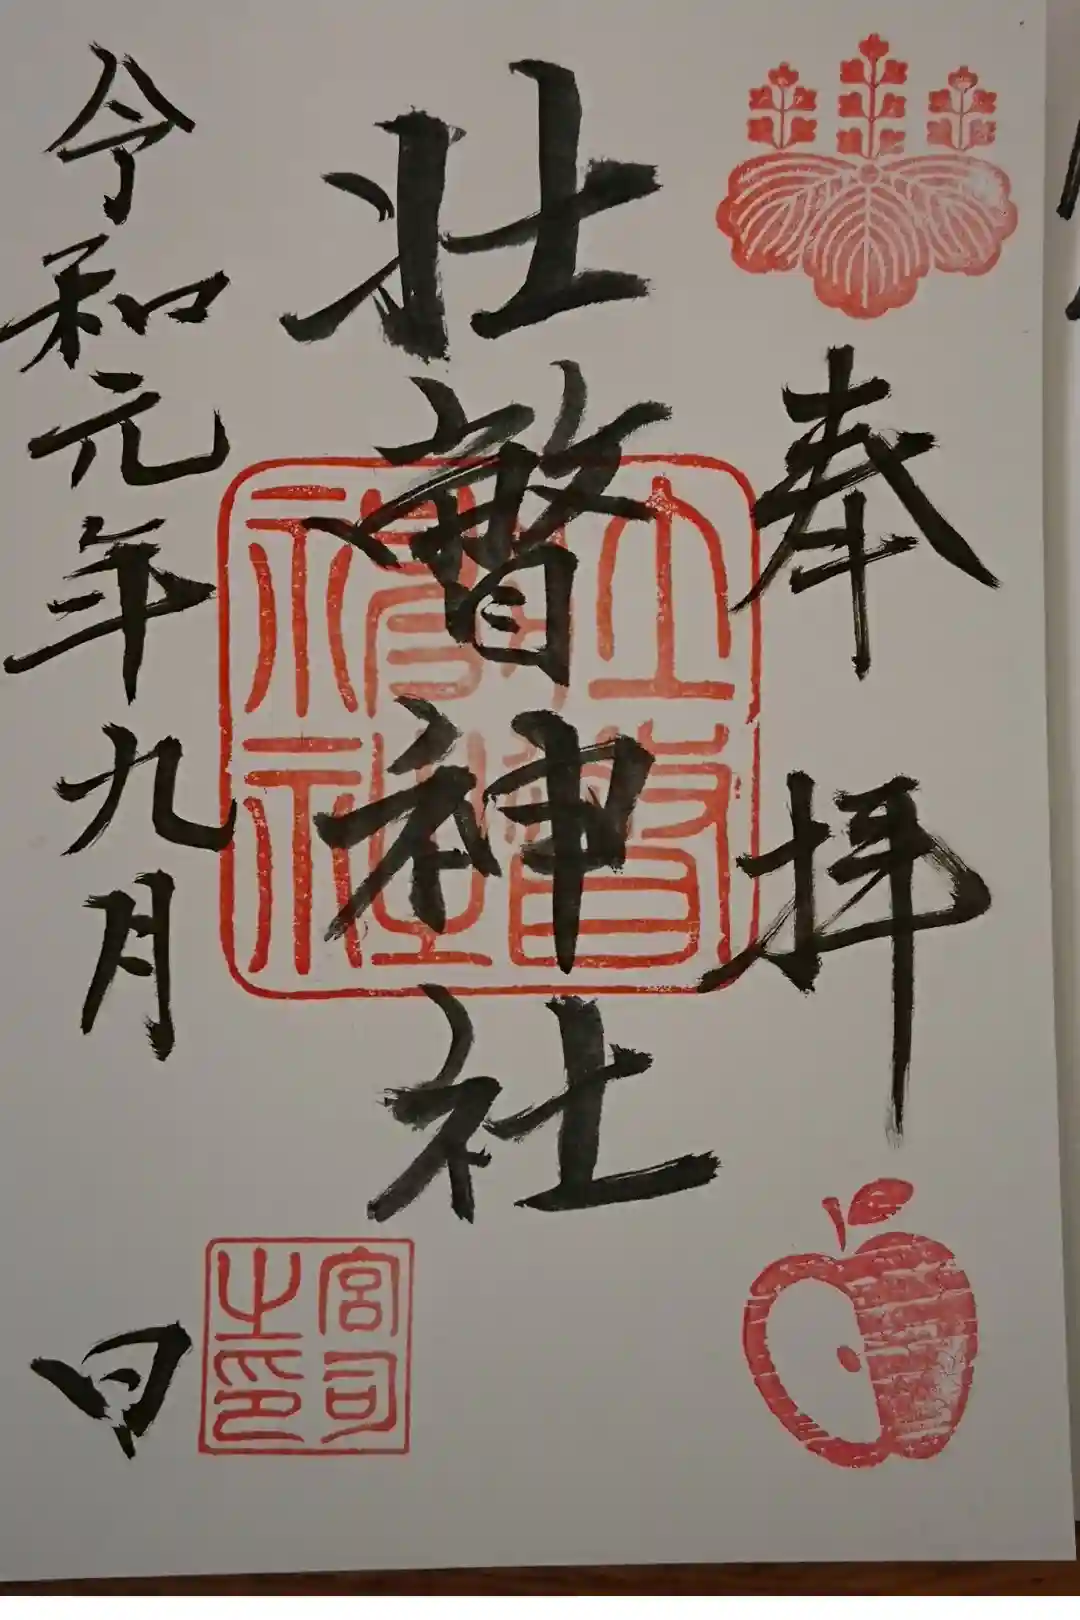 奉拝
壮瞥神社
令和元年九月 日
壮瞥神社
宮司之印